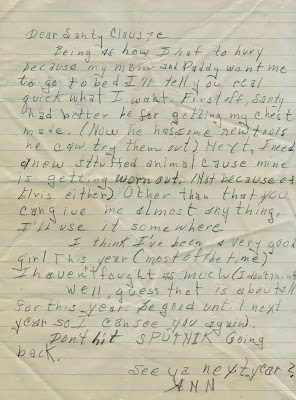 Dear Santy Clause
Being as how I haf to hury
because my mom and Daddy want me
to go to bed I'll tell you real
quick what I want. First off, Santy
had better be for getting my chest
made. (Now he has some new tools
he can try them out) Next, I need
a new stuffed animal cause mine
is getting worn out. (Not because of
Elvis either) Other than that you
can give me almost any thing,
I'll use it somewhere.
I think I've been a very good
girl This year (most of the time)
I haven't fought as much (I don't think)
Well, guess that is about all
for this year. Be good unt. l next
year so I can see you again.
Don't hit SPUTNIK Going
back.
See ya next year?
ANN